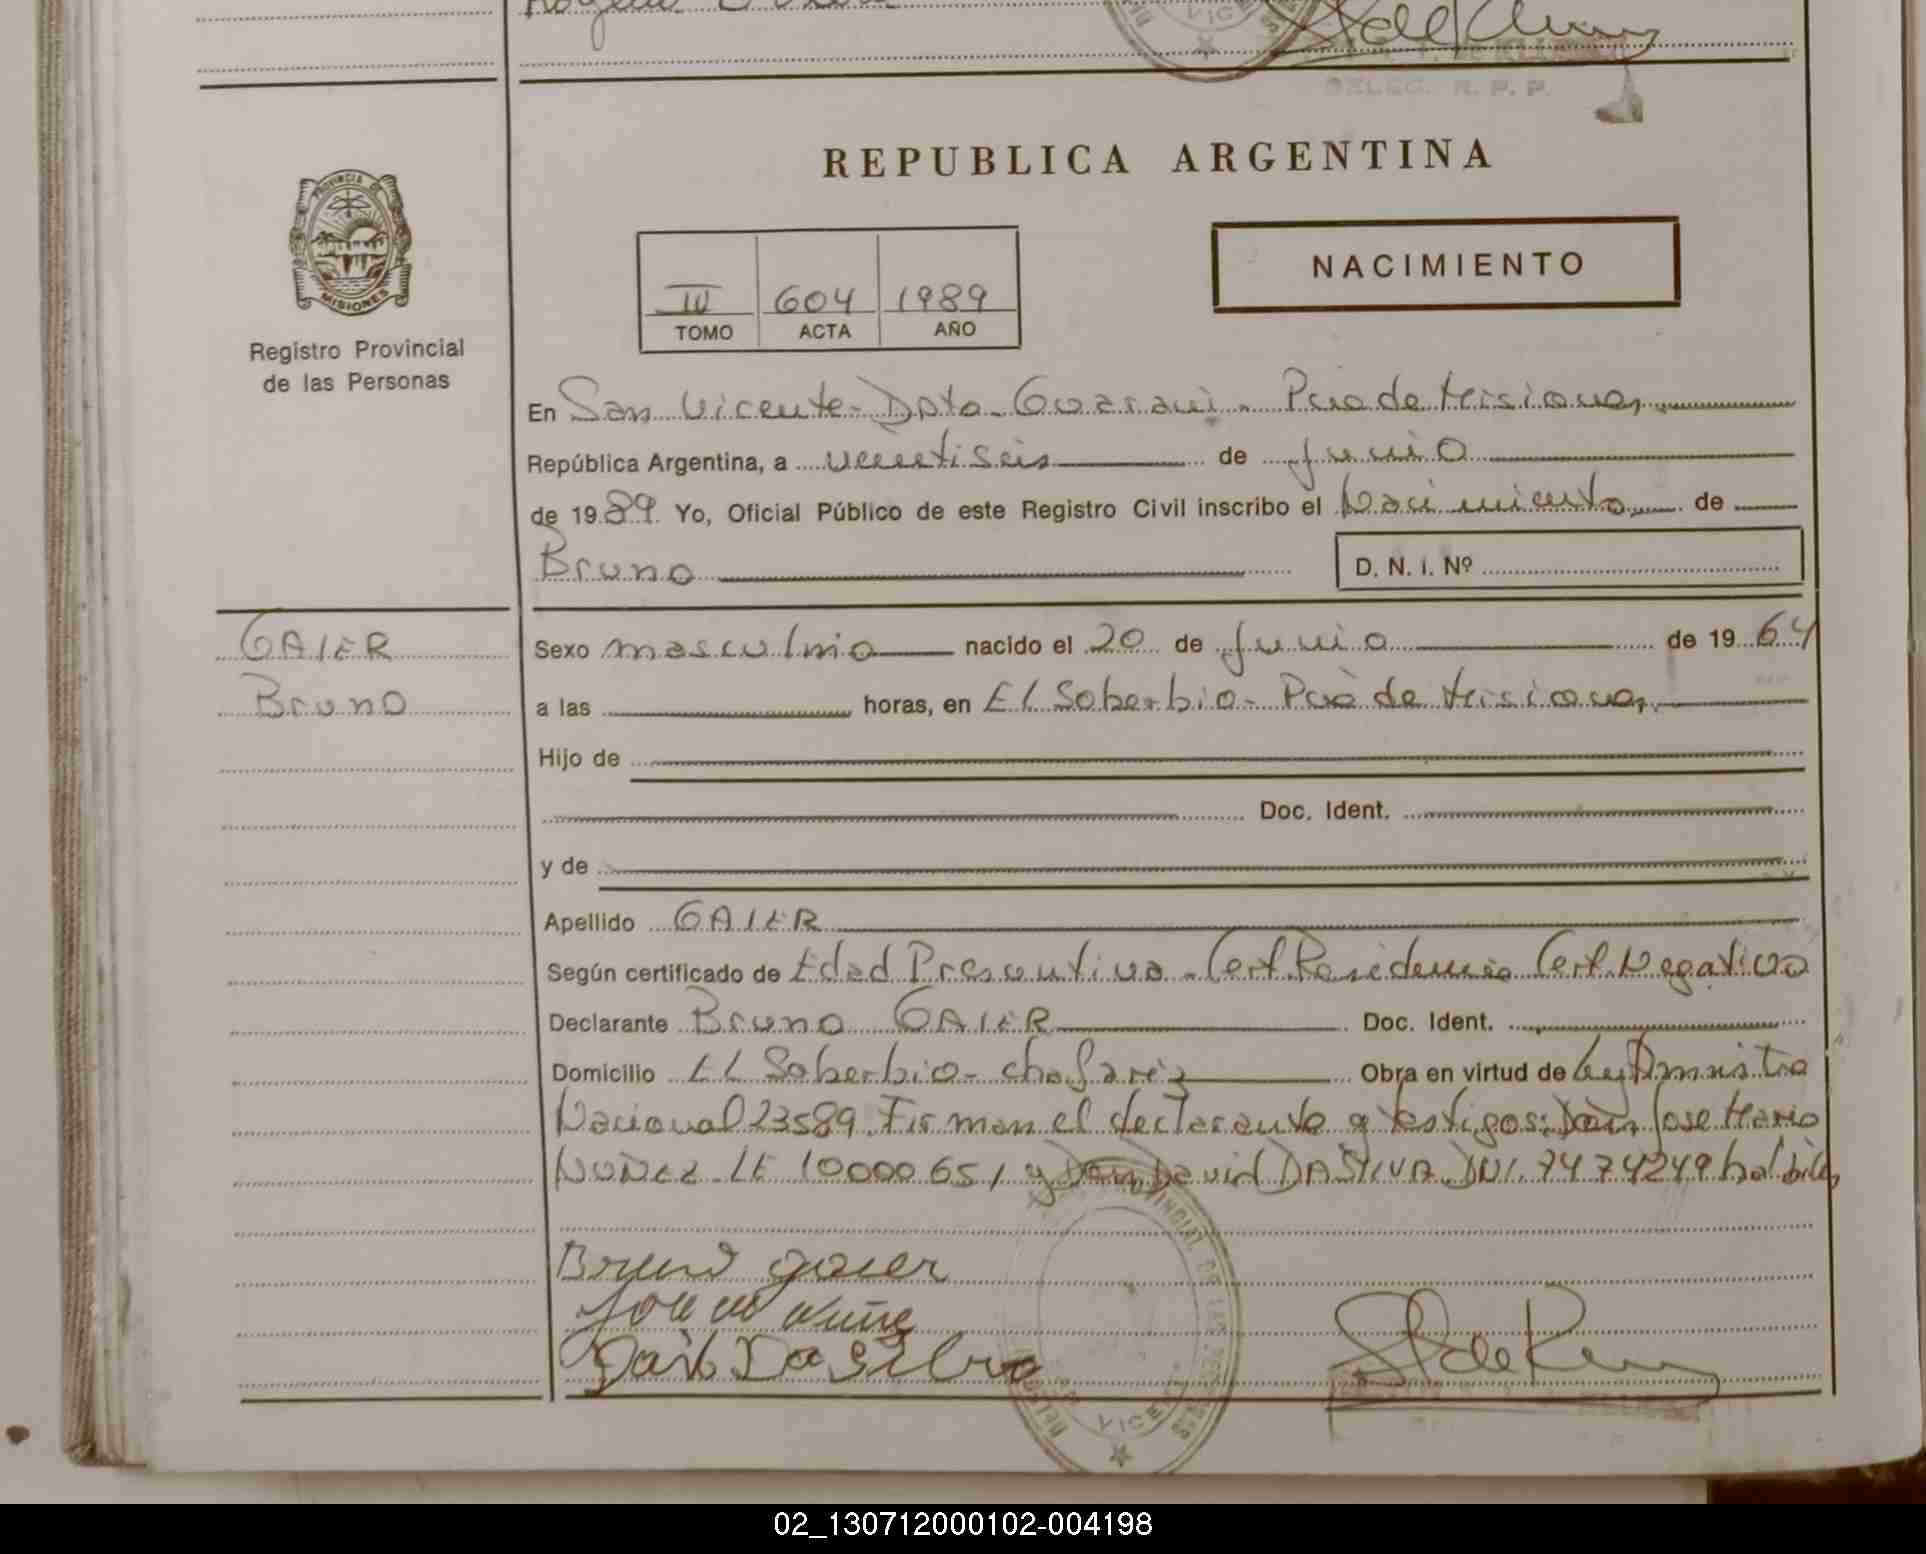 DELEG. R. P. P.
REPUBLICA ARGENTINA
PROVINCIA DE
MISIONES
Registro Provincial
de las Personas
IV 604 1989
TOMO ACTA AÑO
NACIMIENTO
En San Vicente - Dpto. Guaraní - Pcia de Misiones
República Argentina, a veintiseis de junio
de 1989 Yo, Oficial Público de este Registro Civil inscribo el Nacimiento de
Bruno D. N. I. Nº
GAIER
Bruno
Sexo masculino nacido el 20 de Junio de 1964
a las horas, en El Soberbio - Pcia de Misiones
Hijo de
Doc. Ident.
y de
Apellido GAIER
Según certificado de Edad Presuntiva - Cert Residencia Cert. Negativo
Declarante Bruno GAIER Doc. Ident.
Domicilio El Soberbio - chafariz Obra en virtud de Ley Amnistia
Nacional 23589. Firman el declarante y testigos: Don Jose Mario
NUÑEZ LE 10000651 y Don David DA SILVA DNI. 7474249
Bruno gaier
DaSilva
VICE
02_130712000102-004198